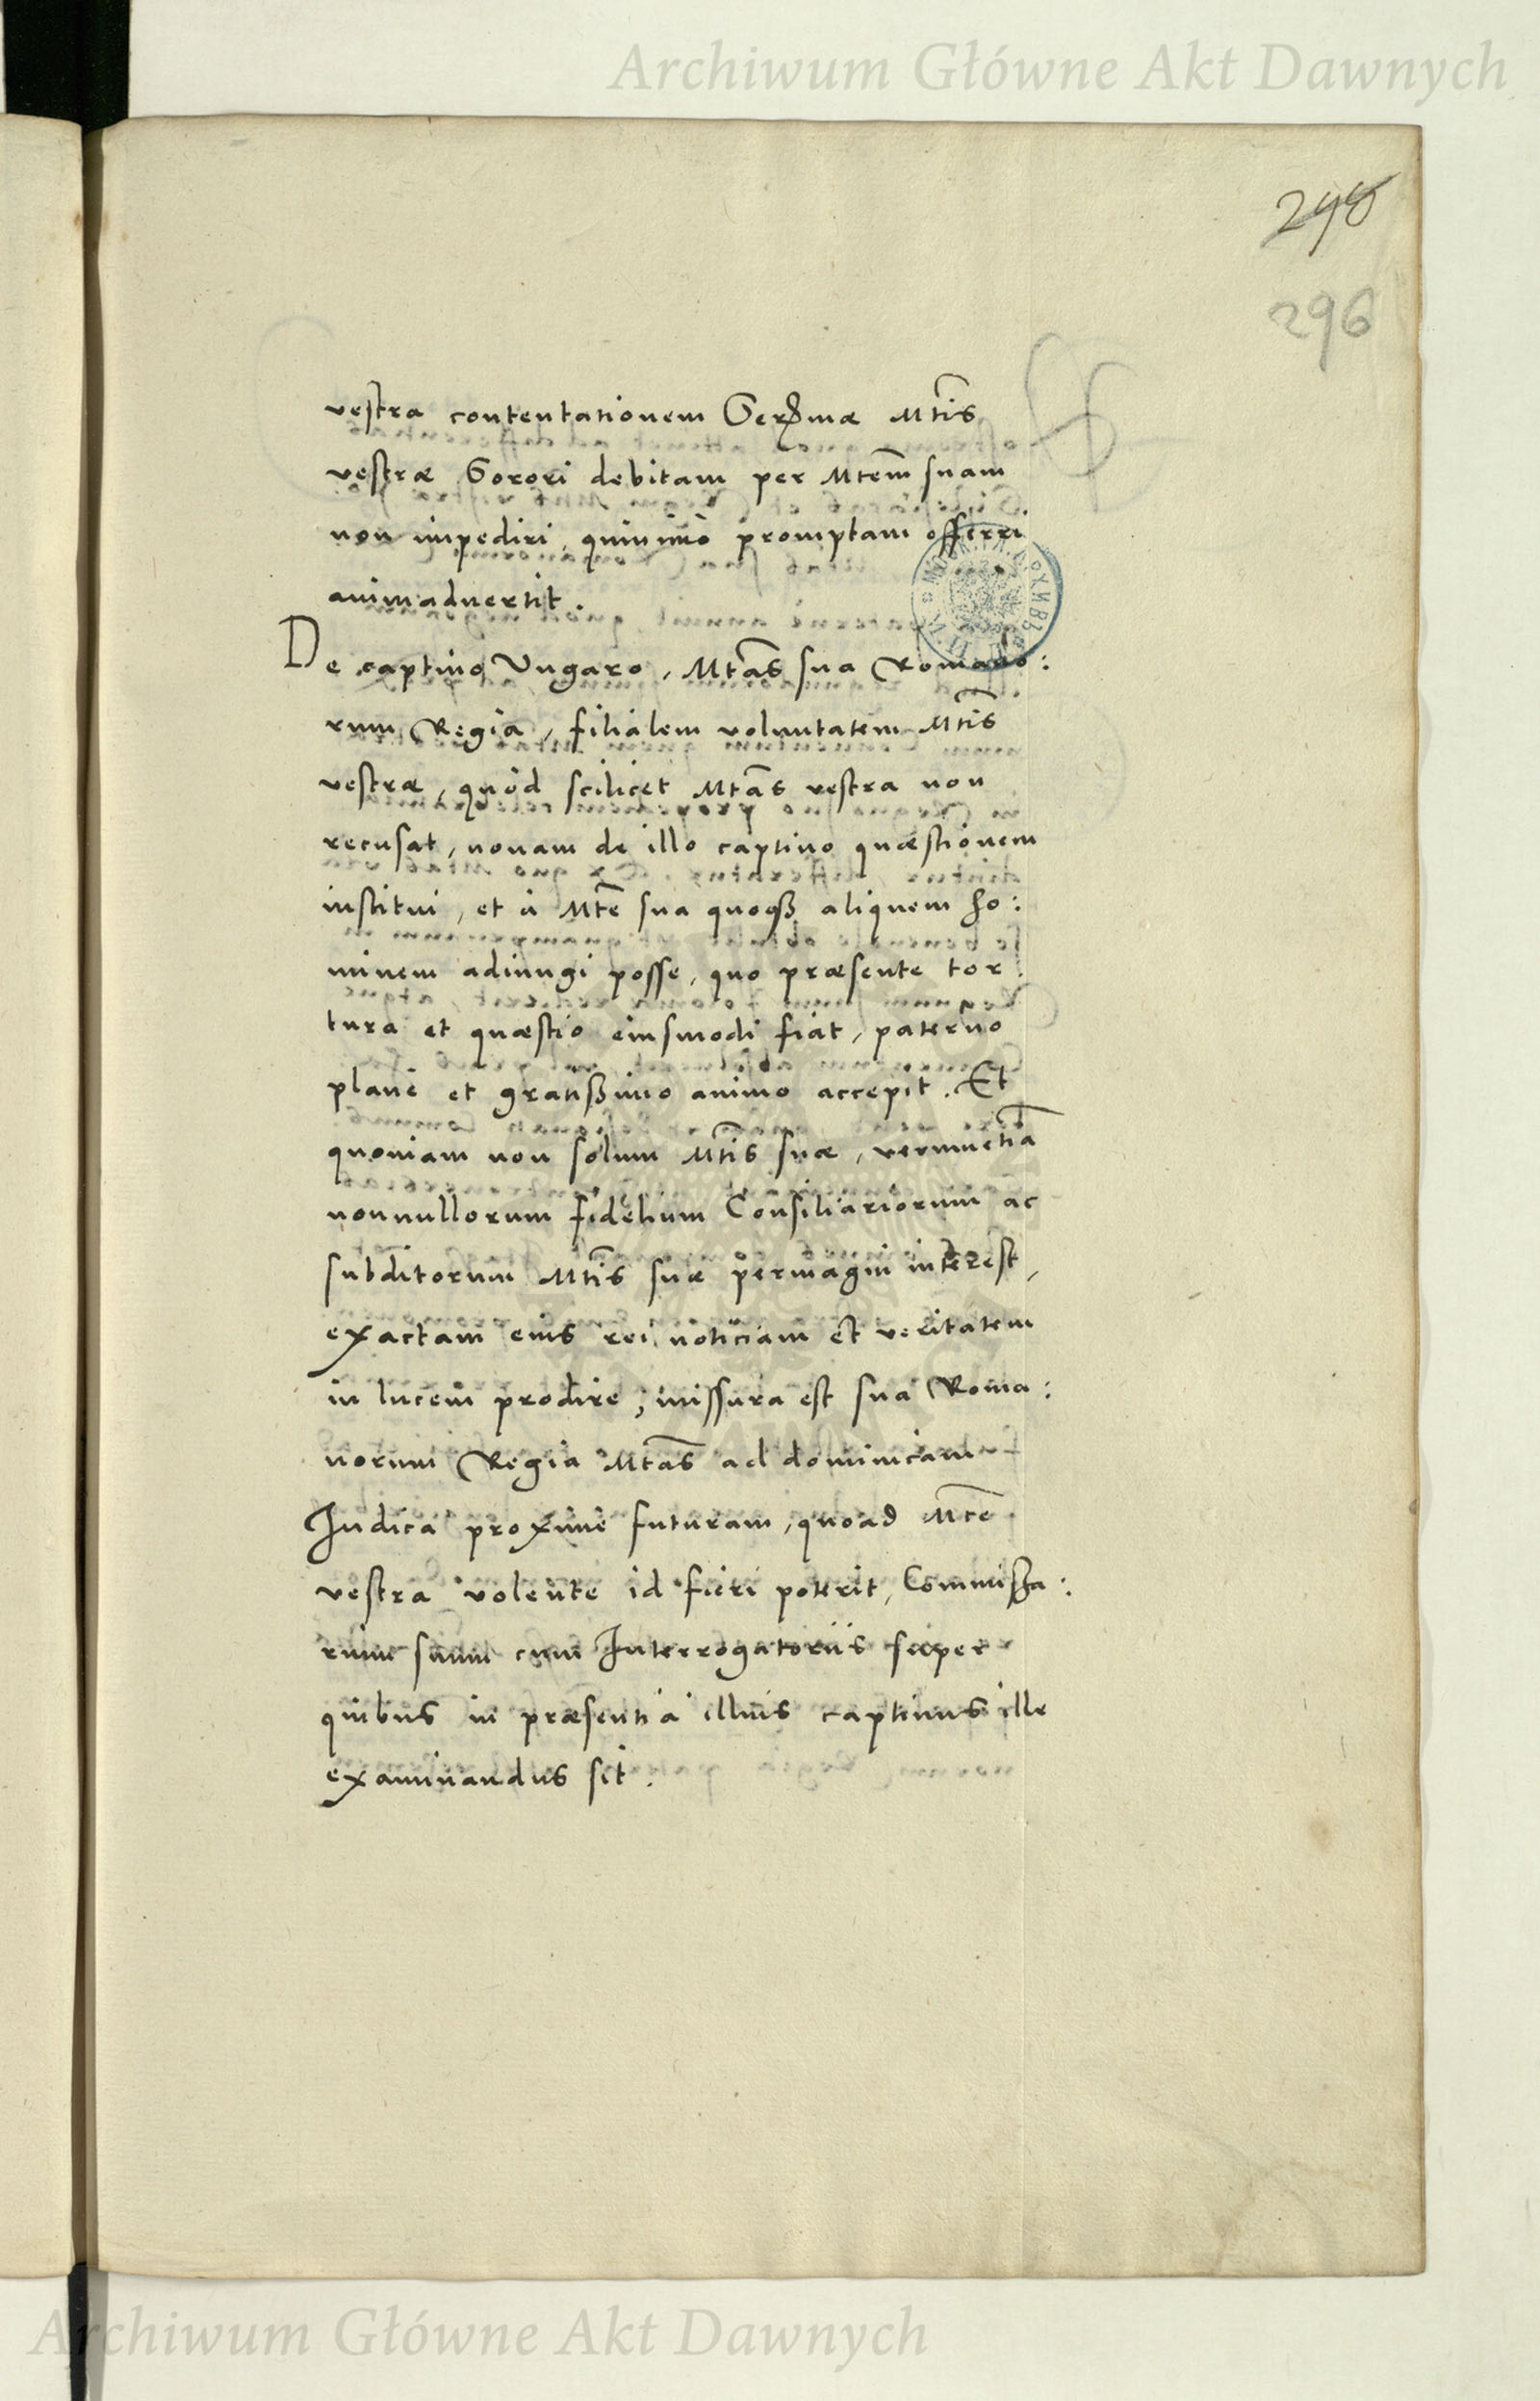 Archiwum Główne Akt Dawnych
290
296
vestra contentationem Serᵐᵃᵉ Mtis
vestræ Sorori debitam per Mtem suam
non impediri, quinimò promptam offerri
animaduertit.
De captiuo Vngaro, Mtas sua Romano:
rum Regia, filialem voluntatem Mtis
vestræ, quòd scilicet Mtas vestra non
recusat, nouam de illo captiuo quæstionem
institui, et à Mte sua quoqꝫ aliquem ho:
minem adiungi posse, quo præsente tor
tura et quæstio eiusmodi fiat, paterno
planè et gratissimo animo accepit. Et
quoniam non solum Mtis suæ, verumetiā
nonnullorum fidelium Consiliariorum ac
subditorum Mtis suæ permagni interest,
exactam eius rei noticiam et veritatem
in lucem prodire, missura est sua Roma:
norum Regia Mtas ad dominicam
Iudica proximè futuram, quoad Mte
vestra volente id fieri poterit, Commissa:
rium suum cum Interrogatoriis super
quibus in præsentia illius captiuus ille
examinandus sit.
Archiwum Główne Akt Dawnych